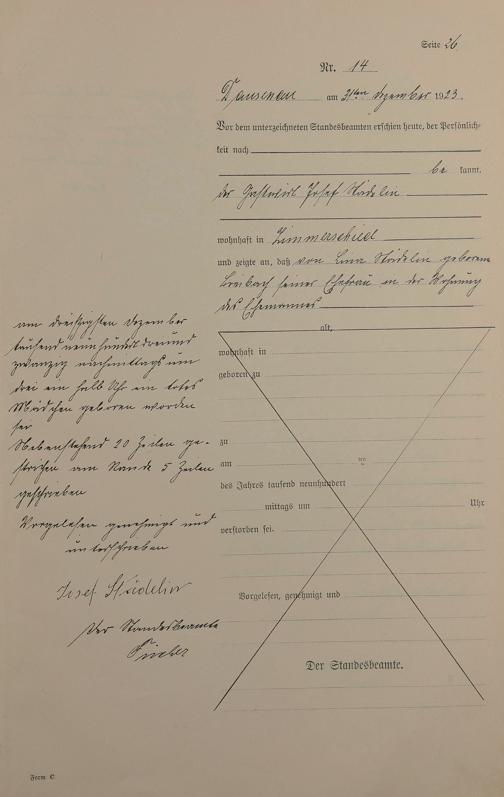 Seite 26
Nr. 14
Dausenau am 31ten Dezember 1923.
Vor dem unterzeichneten Standesbeamten erschien heute, der Persönlich-
keit nach
be kannt,
der Gastwirt Josef Städelin
wohnhaft in Zimmerschied
und zeigte an, daß von Lina Städelin geborene
seiner Ehefrau in der Wohnung
des Ehemannes
alt,
wohnhaft in
geboren zu
zu
am
des Jahres tausend neunhundert
mittags um Uhr
verstorben sei.
Vorgelesen, genehmigt und
Der Standesbeamte.
am dreißigsten Dezember
tausend neunhundert dreiund
zwanzig nachmittags um
drei ein halb Uhr ein totes
Mädchen geboren worden
sei
Nebenstehend 20 Zeilen ge-
strichen am Rande 5 Zeilen
geschrieben
Vorgelesen genehmigt und
unterschrieben
Josef Städelin
Der Standesbeamte
Form C.